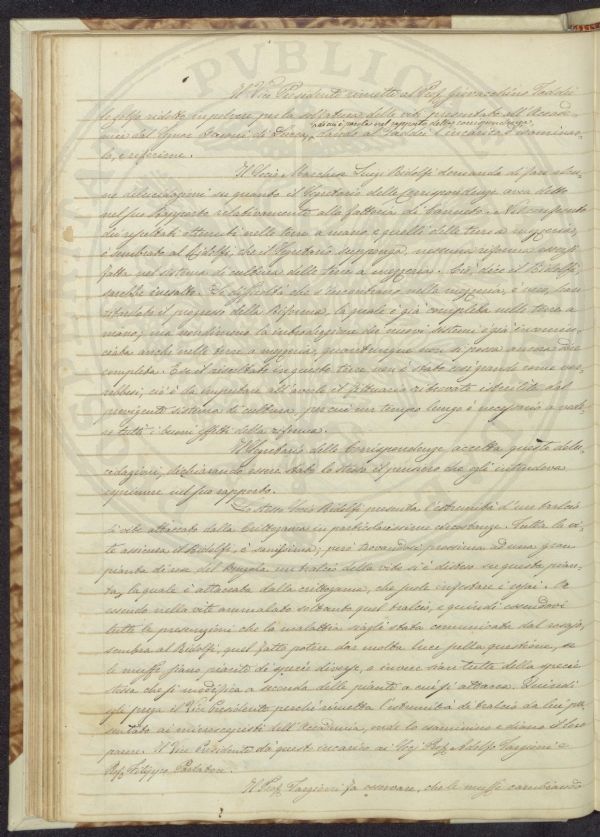 Il Vice Presidente rimette al Prof. Giovacchino Taddei
lo zolfo ridotto in polvere per la solfatura delle viti presentato all'Accade-
mia dal Signor di Lucca, dando al Taddei l'incarico d'esaminar-
di cui è parlato nel rapporto della corrispondenza
lo, e riferirne.
Il Socio Marchese Luigi Ridolfi domanda di fare alcu-
ne dilucidazioni su quanto il Segretario delle Corrispondenze avea detto
nel suo Rapporto relativamente alla fattoria di Canneto. Nel confronto
dei resultati ottenuti nelle terre a mano e quelli delle terre a mezzeria,
è sembrato al Ridolfi, che il Segretario supponga nessuna riforma essersi
fatta nel sistema di cultura delle terre a mezzeria. Ciò, dice il Ridolfi,
sarebbe inesatto. Le difficoltà che s'incontrano nella mezzeria, è vero, han
ritardato il progresso della Riforma, la quale è già completa nelle terre a
mano; ma nondimeno la introduzione dei nuovi sistemi è già incomin-
ciata anche nelle terre a mezzeria, quantunque non si possa ancora dire
completa. E se il resultato in queste terre non è stato così grande come vor-
rebbesi, ciò è da imputare all'averle il ritrovate isterilite dal
previgente sistema di cultura, per cui un tempo lungo è necessario a
tutti i buoni effetti della riforma.
Il Segretario delle Corrispondenze accetta queste dilu-
cidazioni, dichiarando essere stato lo stesso il pensiero che egli intendeva
esprimere nel suo rapporto.
Lo stesso Socio Ridolfi presenta l'estremità d'un tralcio
di vite attaccato dalla Crittogama in particolarissime circostanze. Tutta la vi-
te assicura il Ridolfi, è sanissima; però trovandosi prossima ad una gran
pianta di rosa del Bengala un tralcio della vite si è disteso su questa pian-
ta, la quale è attaccata dalla crittogama, che suole infestare i rosai. Es-
sendo nella vite ammalato soltanto quel tralcio, e quindi essendovi
tutte le presunzioni che la malattia siagli stata comunicata dal rosajo,
sembra al Ridolfi, quel fatto potere dar molta luce sulla questione, se
le muffe siano piante di specie diverse, o invece sian tutte della specie
stessa che si modifica a seconda delle piante a cui si attacca. Quindi
egli prega il Vice Presidente perchè rimetta l'estremità di tralcio da lui pre-
sentato ai microscopisti dell'Accademia, onde lo esaminino e diano il loro
parere. Il Vice Presidente dà questo incarico ai Sigg. Prof. Adolfo Targioni e
Prof. Filippo Parlatore.
Il Prof. Targioni fa osservare, che le muffe cambiando